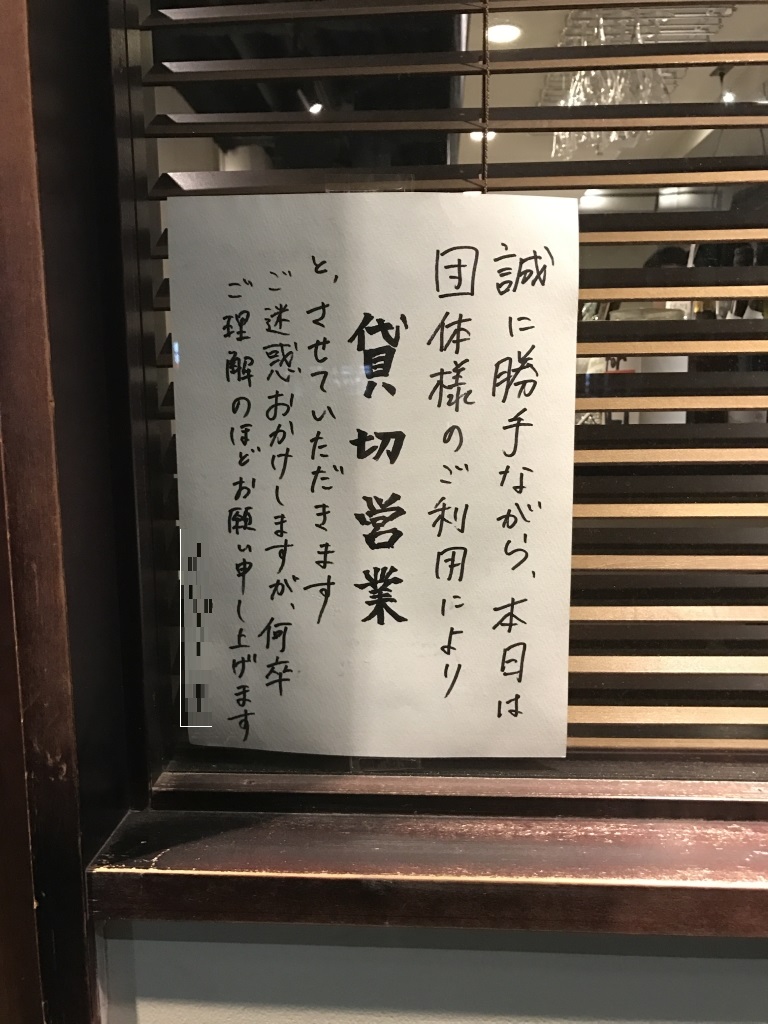 誠に勝手ながら、本日は
団体様のご利用により
貸切営業
と、させていただきます
ご迷惑おかけしますが、何卒
ご理解のほどお願い申し上げます